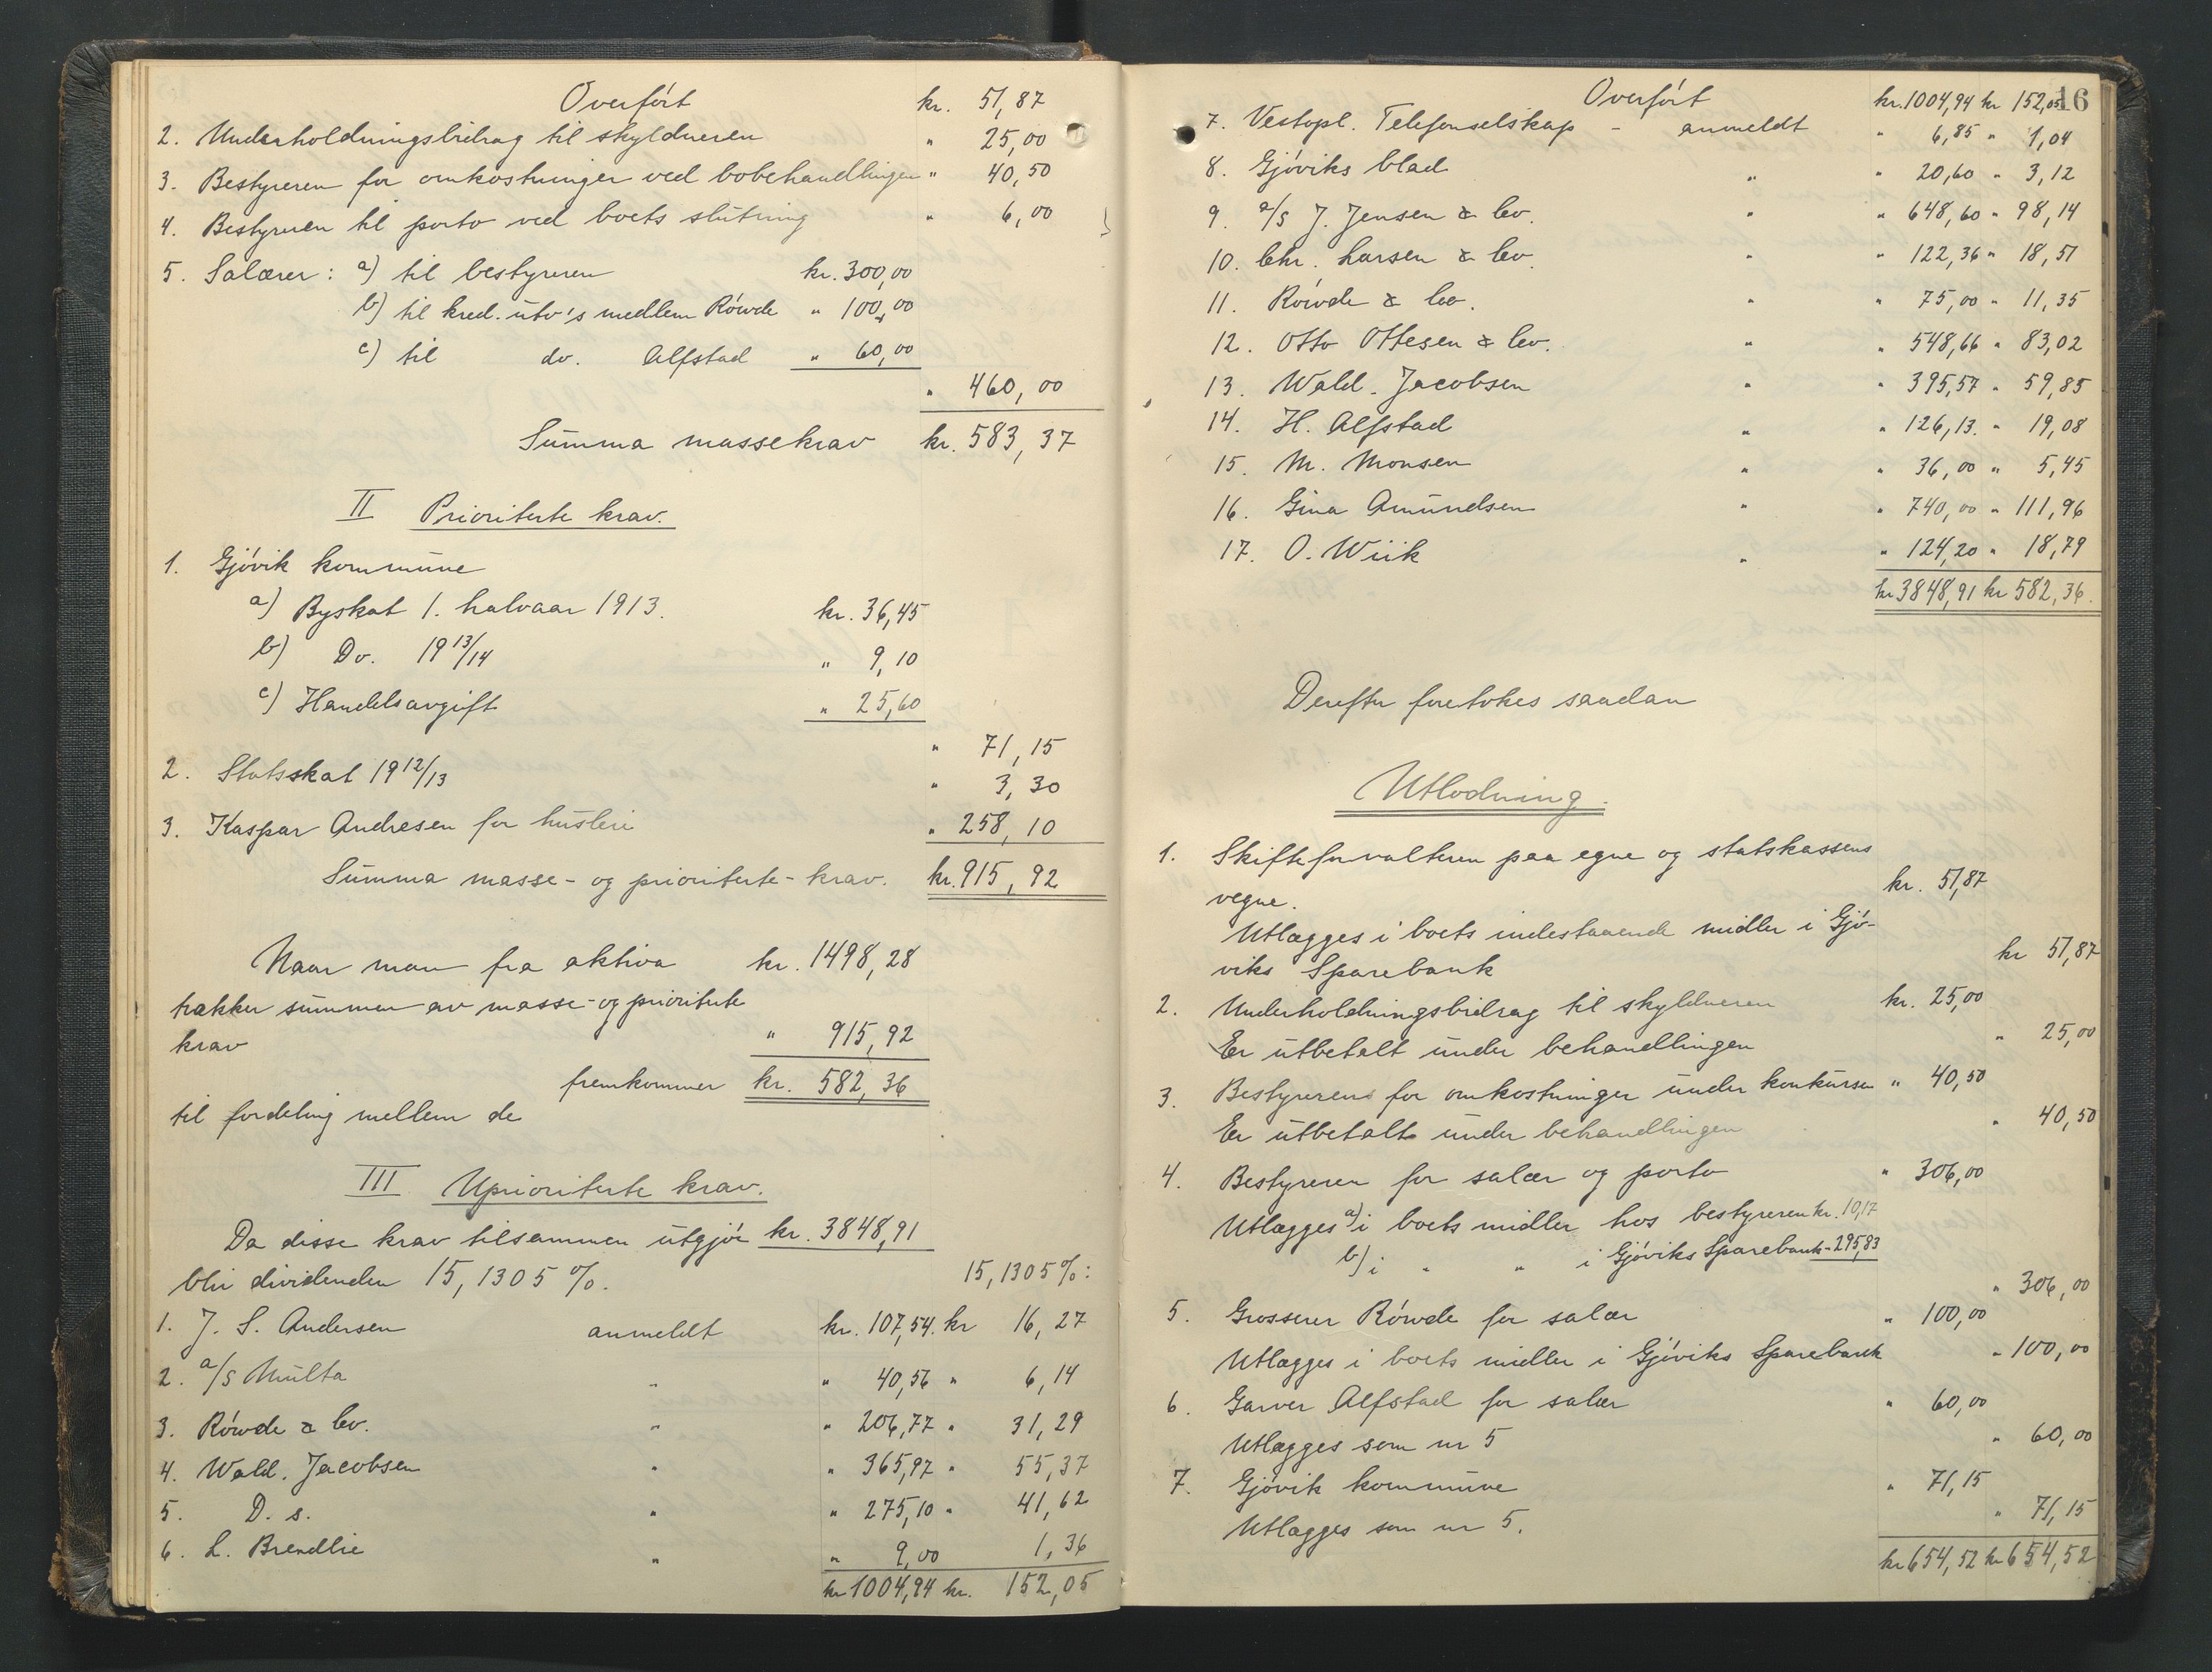 Overført kr. 51,87
2. Underholdningsbidrag til skyldneren " 25,00
3. Bestyreren for omkostninger ved bobehandlingen " 40,50
4. Bestyreren til porto ved boets slutning " 6,00
5. Salærer: a) til bestyreren kr. 300,00
b) til kred. utv's medlem Røwde " 100,00
c) til do. Alfstad " 60,00
" 460,00
Summa massekrav kr. 583,37
II Prioriterte krav.
1. Gjøvik kommune
a) Byskat 1. halvaar 1913. kr. 36,45
b) Do. 1913/14 " 9,10
c) Handelsavgift " 25,60
" 71,15
2. Statsskat 1912/13 " 3,30
3. Kaspar Andresen for husleie " 258,10
Summa masse- og prioriterte- krav. kr. 915,92
Naar man fra aktiva kr. 1498,28
trækker summen av masse- og prioriterte
krav " 915,92
fremkommer kr. 582,36
til fordeling mellem de
III Uprioriterte krav.
Da disse krav tilsammen utgjør kr. 3848,91
blir dividenden 15,1305 %. 15,1305 %:
1. J. S. Andersen anmeldt kr. 107,54. kr 16,27
2. a/s Multa " " 40,56 " 6,14
3. Røwde & Co. " " 206,77 " 31,29
4. Wald. Jacobsen " " 365,97 " 55,37
5. D. s. " " 275,10 " 41,62
6. L. Brendlie " " 9,00 1,36
kr 1004,94 kr. 152,05
16
Overført kr. 1004,94 kr 152,05
7. Vestopl. Telefonselskap - anmeldt " 6,85 " 1,04
8. Gjøviks blad " " 20,60 " 3,12
9. a/s J. Jensen & Co. " " 648,60 " 98,14
10. Chr. Larsen & Co. " " 122,36 " 18,51
11. Røwde & Co. " " 75,00 " 11,35
12. Otto Ottesen & Co. " " 548,66 " 83,02
13. Wald. Jacobsen " " 395,57 " 59,85
14. H. Alfstad " " 126,13. " 19,08
15. M. Monsen " " 36,00 " 5,45
16. Gina Amundsen " " 740,00 " 111,96
17. O. Wiik " " 124,20 " 18,79
kr 3848,91 kr 582,36.
Derefter foretokes saadan
Utlodning.
1. Skifteforvalteren paa egne og statskassens
vegne. kr. 51,87
Utlægges i boets indestaaende midler i Gjø-
viks Sparebank kr 51,87
2. Underholdningsbidrag til skyldneren kr. 25,00
Er utbetalt under behandlingen " 25,00
3. Bestyrerens for omkostninger under konkursen " 40,50
Er utbetalt under behandlingen " 40,50
4. Bestyreren for salær og porto " 306,00
Utlægges a) i boets midler hos bestyreren kr. 10,17
b) i " " i Gjøviks Sparebank - 295,83
" 306,00
5. Grosserer Røwde for salær " 100,00
Utlægges i boets midler i Gjøviks Sparebank " 100,00
6. Garver Alfstad for salær " 60,00
Utlægges som nr 5 " 60,00
7. Gjøvik kommune " 71,15
Utlægges som nr 5. " 71,15
kr 654,52 kr 654,52